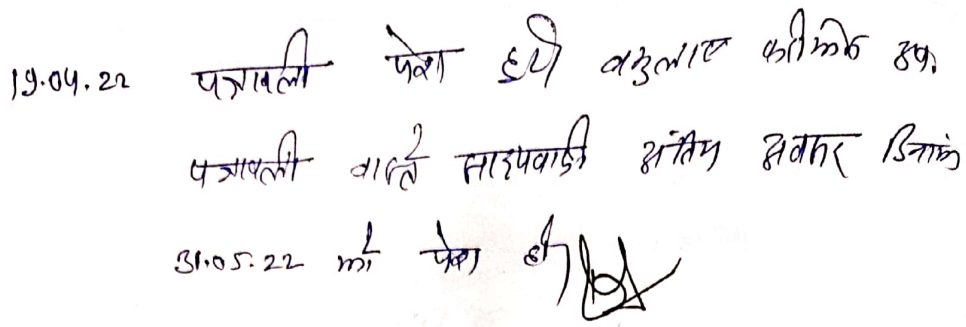 19.04.22 पत्रावली पेश हुयी वकुलाए फरीकेन उप.
पत्रावली वास्ते साक्ष्यवादी अंतिम अवसर दिनांक
31.05.22 को पेश हो